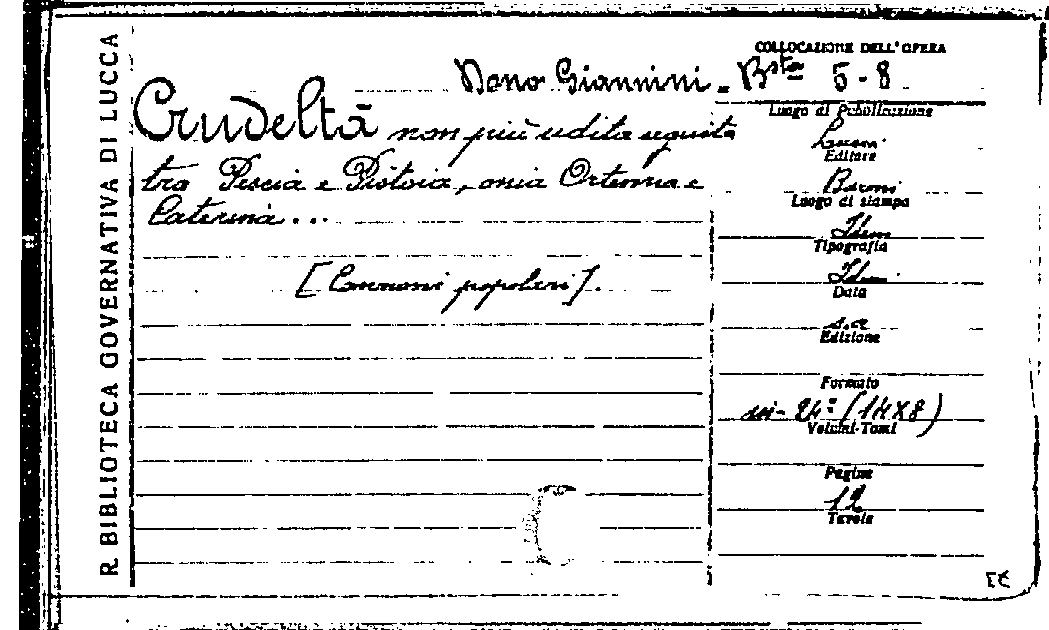 R. BIBLIOTECA GOVERNATIVA DI LUCCA
COLLOCAZIONE DELL'OPERA
Dono Giannini - Bsta 5-8
Crudeltà non più udita seguita
tra Pescia e Pistoia, ossia Ortensia e
Caterina...
[Canzoni popolari].
Luogo di Pubblicazione
Lucca
Editore
Baroni
Luogo di stampa
Idem
Tipografia
Idem
Data
s.a.
Edizione
Formato
in-24° (14x8)
Volumi-Tomi
Pagine
12
Tavole